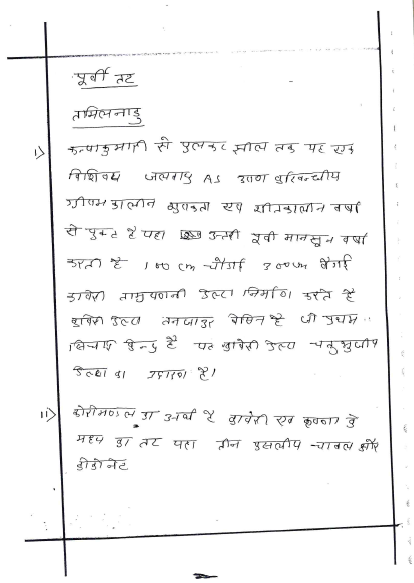 पूर्वी तट
तामिलनाडु
i) कन्याकुमारी से पुलकट झील तक यह एक
विशिष्ट जलवायु AS उष्ण कटिबन्धीय
ग्रीष्म कालीन शुष्कता एवं शीतकालीन वर्षा
से युक्त है यहा उत्तरी पूर्वी मानसून वर्षा
करती है 100 cm चौड़ाई
कावेरी ताम्रपर्णी डेल्टा निर्माण करते है
कावेरी डेल्टा तनजाउर बेसिन है जो प्रथम
सिचाई बिन्दु है पर कावेरी डेल्टा चतुर्भुजीय
डेल्टा का है।
ii) कोरोमण्डल का अर्थ है कावेरी एव कृष्णा के
मध्य का तट यहा तीन फसलीय चावल और